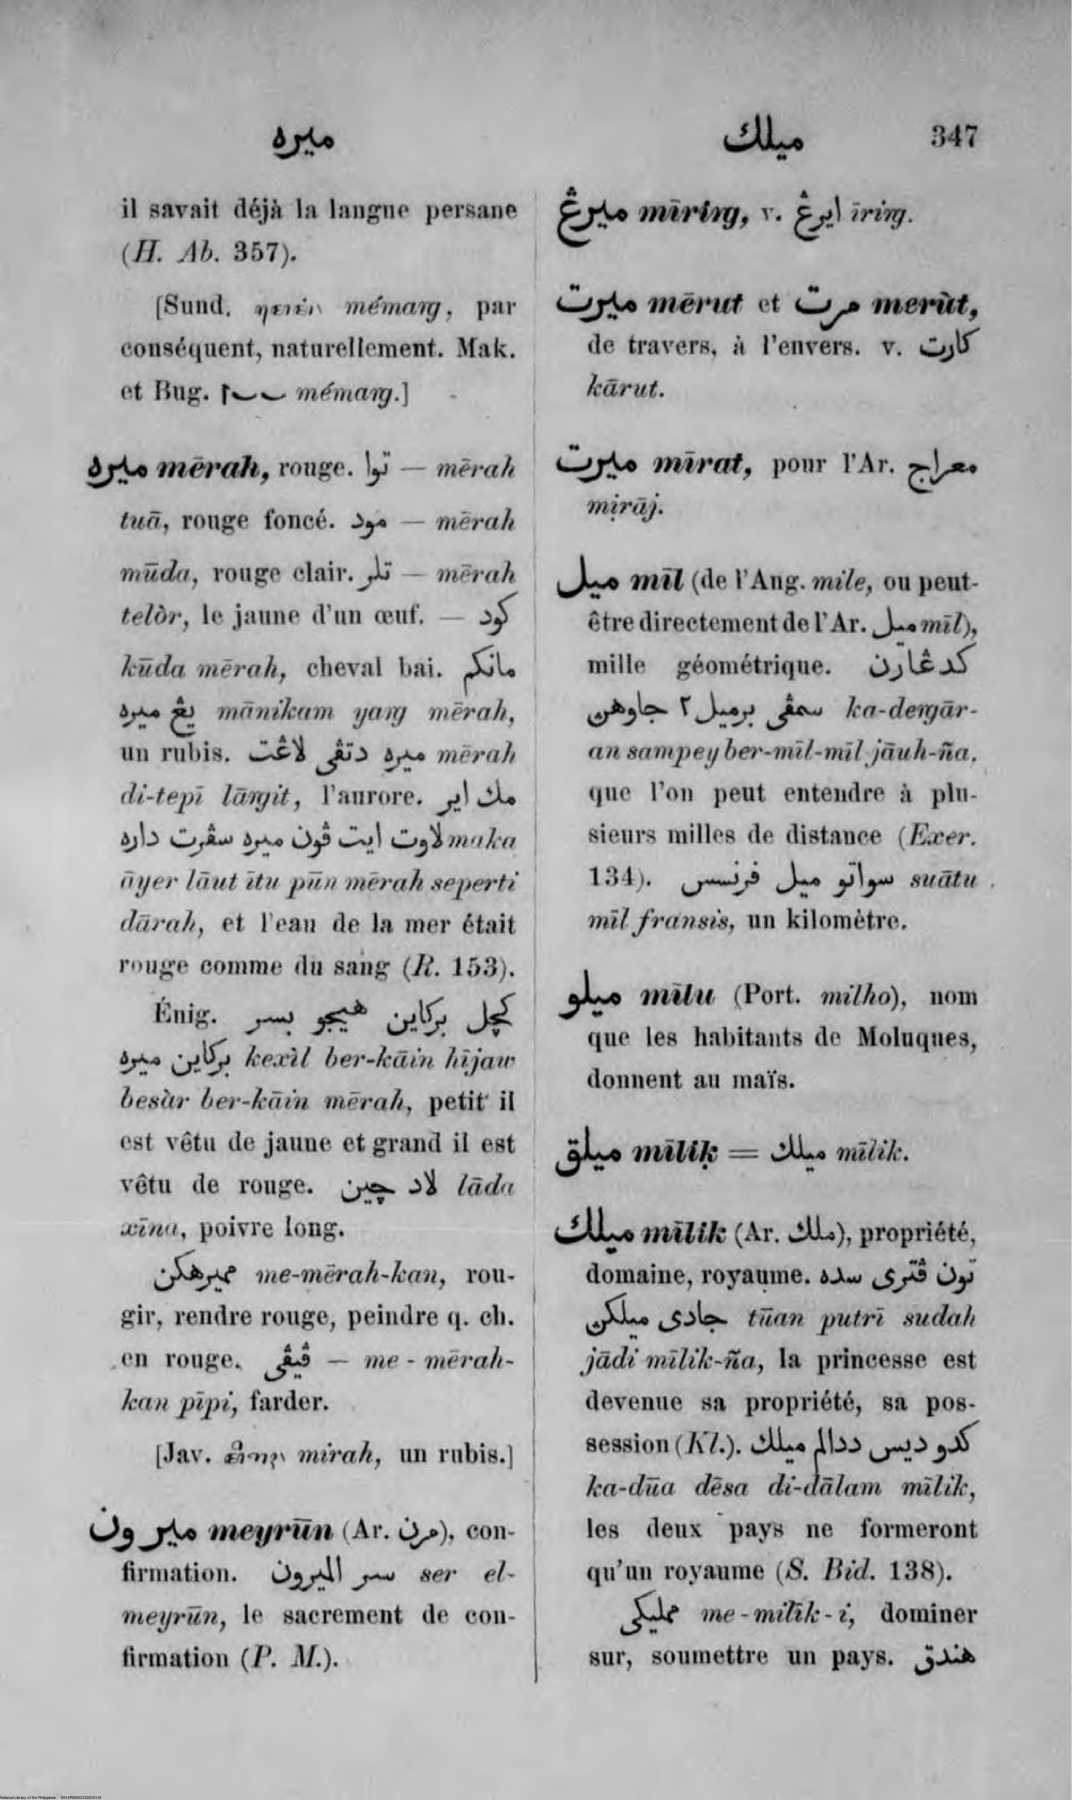 ميره
ميلك 347
il savait déjà la langue persane
(H. Ab. 357).
[Sund. mémaṙg, par
conséquent, naturellement. Mak.
et Bug. mémaṙg.]
ميره mērah, rouge. توا — mērah
tuā, rouge foncé. مود — mērah
mūda, rouge clair. تلر — mērah
telòr, le jaune d'un œuf. — كود
kūda mērah, cheval bai. مانكم
يڠ ميره mānikam yaṙg mērah,
un rubis. ميره دتڤى لاڠت mērah
di-tepī lāṙgit, l'aurore. مك اير
لاوت ايت ڤون ميره سڤرت داره maka
āyer lāut ītu pūn mērah seperti
dārah, et l'eau de la mer était
rouge comme du sang (R. 153).
Énig. كچل بركاين هيجو بسر
بركاين ميره kexìl ber-kāin hījaw
besàr ber-kāin mērah, petit il
est vêtu de jaune et grand il est
vêtu de rouge. لاد چين lāda
xīna, poivre long.
مميرهكن me-mērah-kan, rou-
gir, rendre rouge, peindre q. ch.
en rouge. ڤيڤى — me-mērah-
kan pīpi, farder.
[Jav. mirah, un rubis.]
ميرون meyrūn (Ar. مرن), con-
firmation. سر الميرون ser el-
meyrūn, le sacrement de con-
firmation (P. M.).
ميرڠ mīriṙg, v. ايرڠ īriṙg.
ميرت mērut et مرت merùt,
de travers, à l'envers. v. كارت
kārut.
ميرت mīrat, pour l'Ar. معراج
mịrāj.
ميل mīl (de l'Ang. mile, ou peut-
être directement de l'Ar. ميل mīl),
mille géométrique. كدڠارن
سمڤى برميل ٢ جاوهن ka-deṙgār-
an sampey ber-mīl-mīl jāuh-ña,
que l'on peut entendre à plu-
sieurs milles de distance (Exer.
134). سواتو ميل فرنسس suātu
mīl fransis, un kilomètre.
ميلو mīlu (Port. milho), nom
que les habitants de Moluques,
donnent au maïs.
ميلق mīliḳ = ميلك mīlik.
ميلك mīlik (Ar. ملك), propriété,
domaine, royaume. تون ڤترى سده
جادى ميلكن tūan putrī sudah
jādi mīlik-ña, la princesse est
devenue sa propriété, sa pos-
session (Kl.). كدو ديس ددالم ميلك
ka-dūa dēsa di-dālam mīlik,
les deux pays ne formeront
qu'un royaume (S. Bid. 138).
مميليكى me-milīk-i, dominer
sur, soumettre un pays. هندق